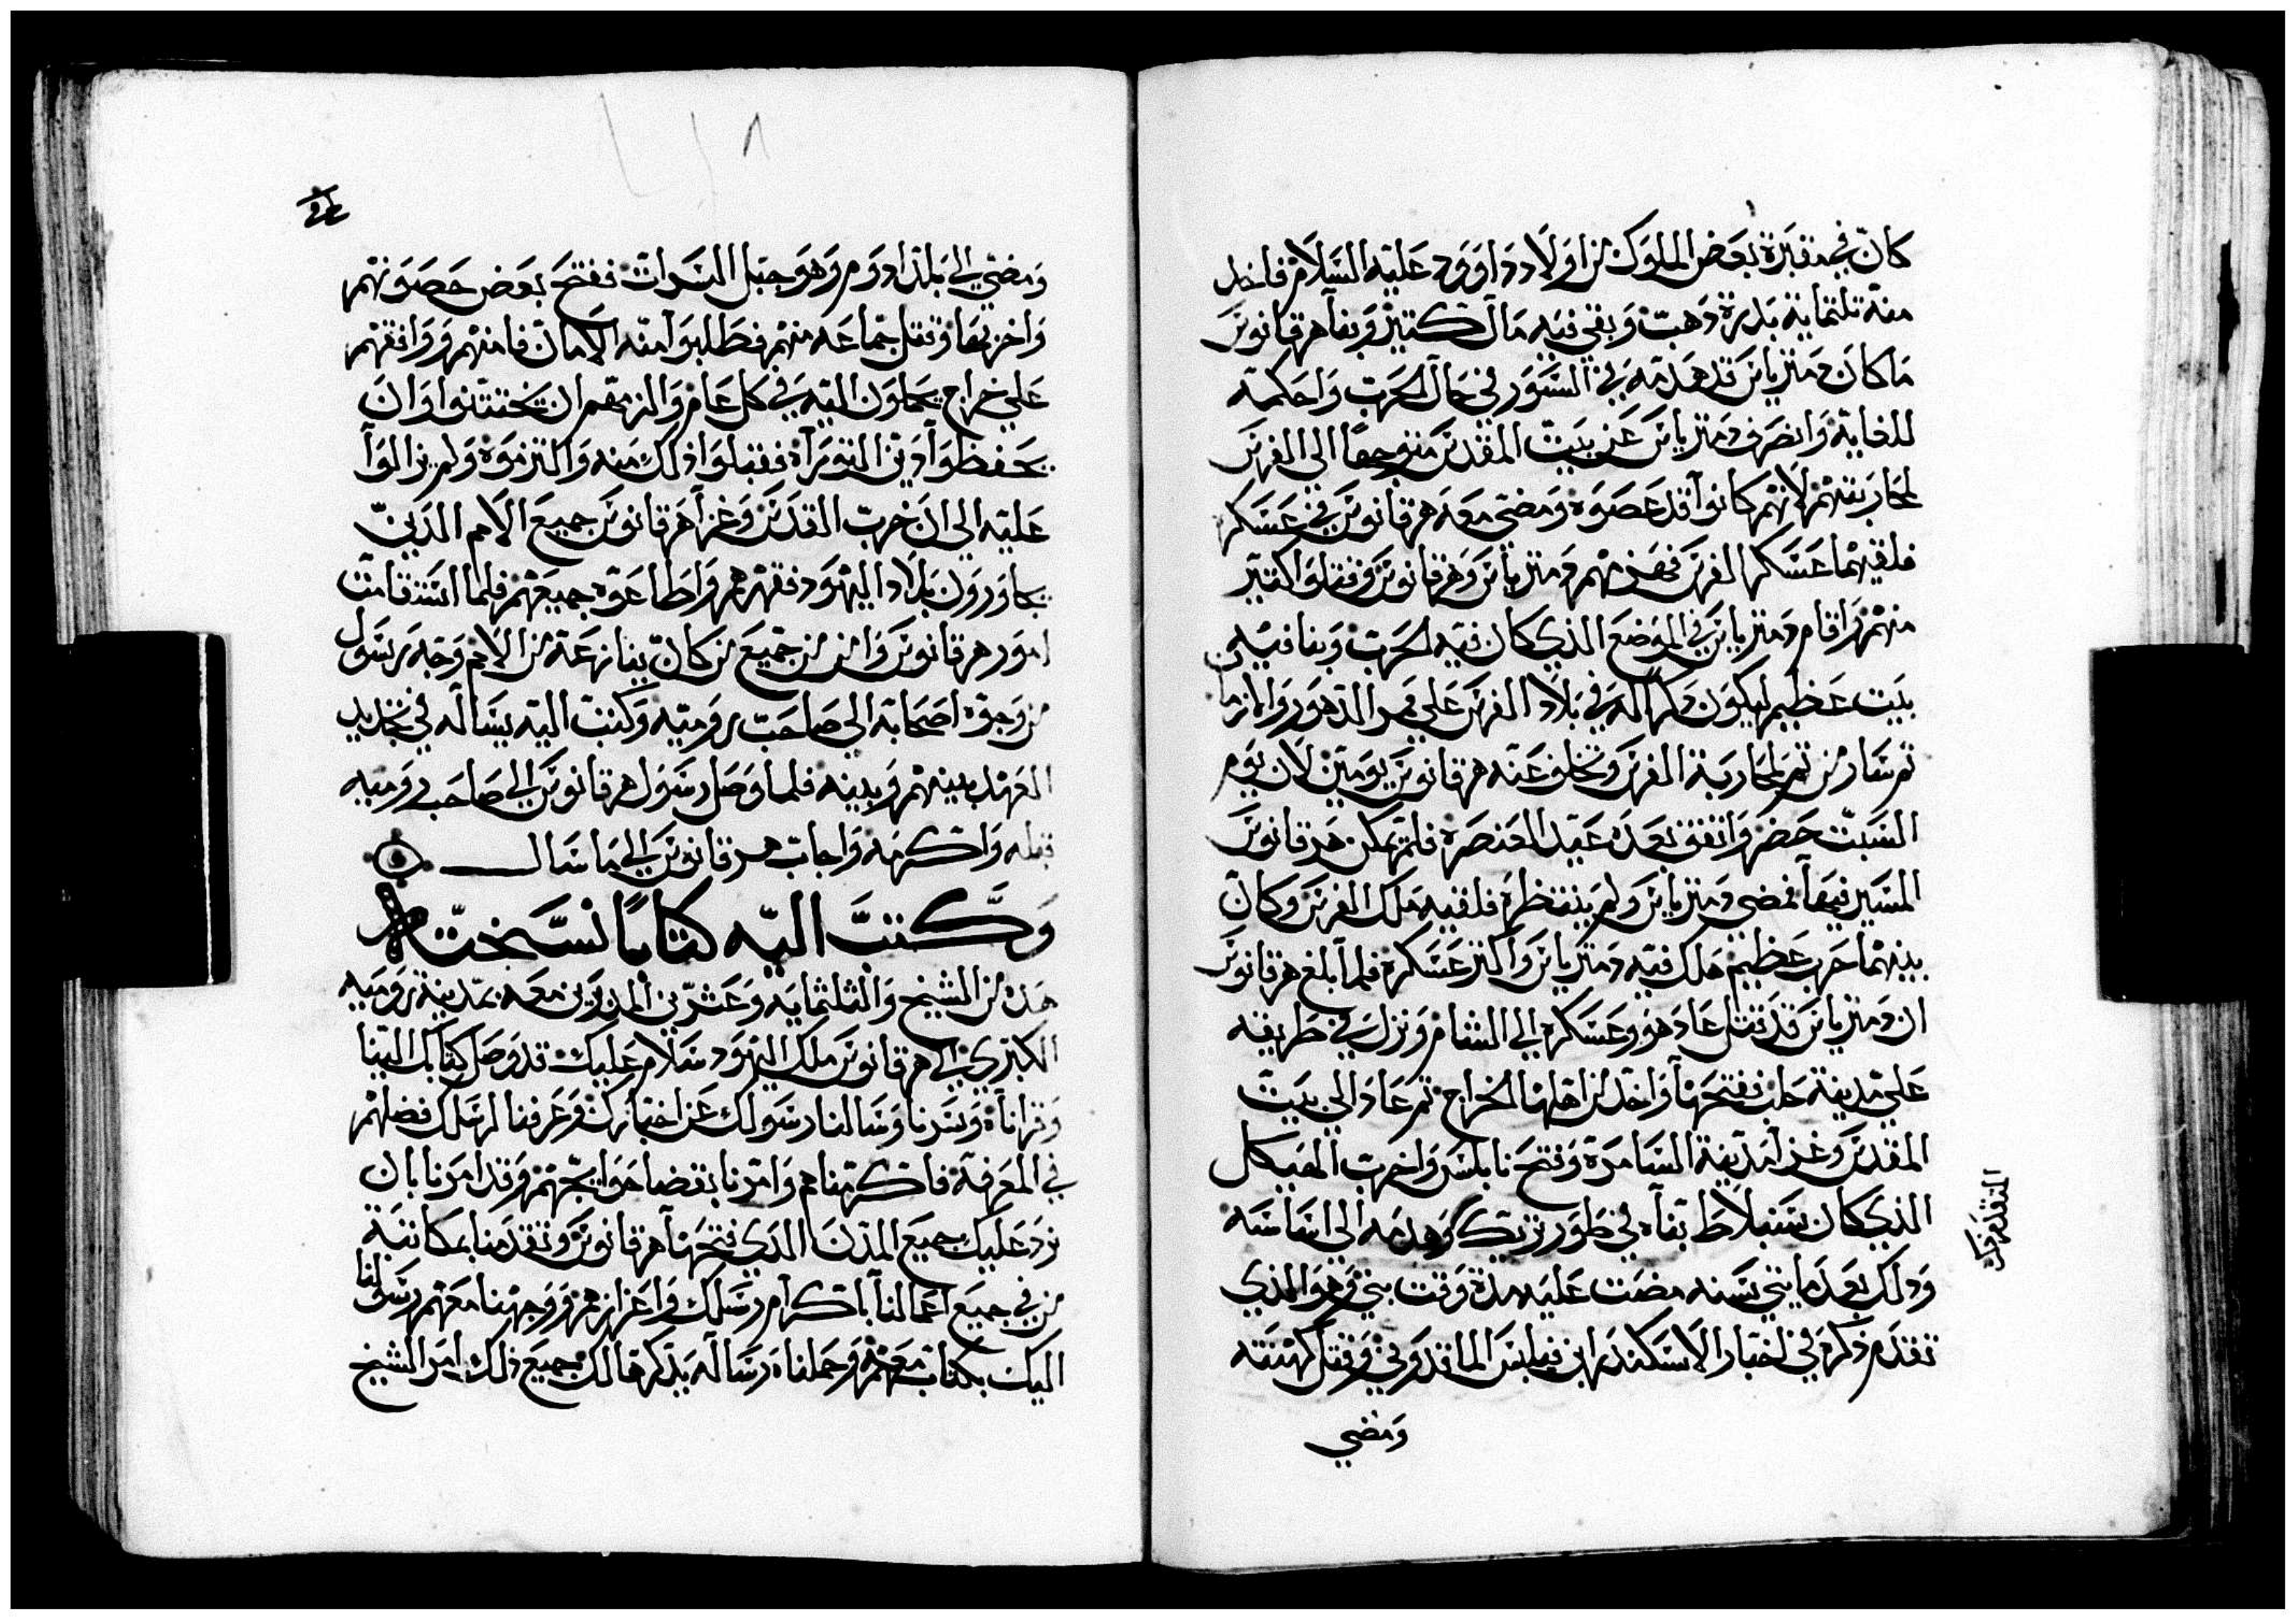 كان في مقبرة بعض الملوك من اولاد داوود عليه السلام فاخد
منه تلتماية بدرة دهب وبقي فيه مال كتير وبنا هرقانوس
ما كان دمتريانس قد هدمه في السور في حال الحرب واحكمه
للغاية وانصرف دمتريانس عن بيت المقدس متوجها الي الفرس
لمحاربتهم لانهم كانوا قد عصوه ومضي معه هرقانوس في عسكر
فلقيهما عسكر الفرس فهزمهم دمتريانس وهرقانوس وقتلوا كتير
منهم واقام دمتريانس في الموضع الذي كان فيه الحرب وبنا فيه
بيت عظيم ليكون دكرا له في بلاد الفرس علي مر الدهور والازمان
تم سار من تم لمحاربة الفرس وتخلف عنه هرقانوس يومين لان يوم
السبت حضر واتفق بعده عيد العنصرة فلم يمكن هرقانوس
المسير فيها فمضي دمتريانس ولم ينتظره فلقيه ملك الفرس وكان
بينهما حرب عظيم هلك فيه دمتريانس واكتر عسكره فلما بلغ هرقانوس
ان دمتريانس قد قتل عاد هو وعسكره الي الشام ونزل في طريقه
علي مدينة حلب ففتحها واخد من اهلها الخراج تم عاد الي بيت
المقدس وغزا مدينة السامرة وفتح نابلس واخرب الهيكل
الذي كان سنبلاط بناه في طور بزيك وهدمه الي اساسه
ودلك بعد مايتي سنه مضت عليه مدة وقت بني وهو الذي
تقدم دكره في اخبار الاسكندر ابن فيلبس الماقدوني وقتل كهنته
ومضي
ومضي الي بلد ادوم وهو جبل السرات ففتح بعض حصونهم
واخربها وقتل جماعه منهم فطلبوا منه الامان فامنهم ووافقهم
علي خراج يحملون اليه في كل عام والزمهم ان يختتنوا وان
يحفظوا دين التوراه فقبلوا ذلك منه والتزموه ولم يزالوا
عليه الي ان خرب القدس وغزا هرقانوس جميع الامم الدين
يجاورون بلاد اليهود فقهرهم واطاعوه جميعهم فلما استقامت
امور هرقانوس وامن من جميع من كان ينازعه من الامم وجه رسول
من وجوه اصحابه الي صاحب روميه وكتب اليه يساله في تجديد
العهد بينهم وبينه فلما وصل رسول هرقانوس الي صاحب روميه
قبله واكرمه واجاب هرقانوس الي ما سال
وكتب اليه كتابا نسخته
هدة من الشيخ والثلثمايه وعشرين المدبرين معه بمدينة روميه
الكبري الي هرقانوس ملك اليهود سلام عليك قد وصل كتابك الينا
وقراناه وسرنا وسالنا رسولك عن اخبارك وعرفنا لرسلك فضلهم
في المعرفة فاكرمناهم وامرنا بقضا حوايجهم وقد امرنا بان
نرد عليك جميع المدن الدي فتحها هرقانوس وتقدمنا بمكاتبة
من في جميع اعمالنا باكرام رسلك واعزازهم ووجهنا معهم رسولنا
اليك بكتاب معهم وحملناه رساله يدكرها لك جميع ذلك امر الشيخ